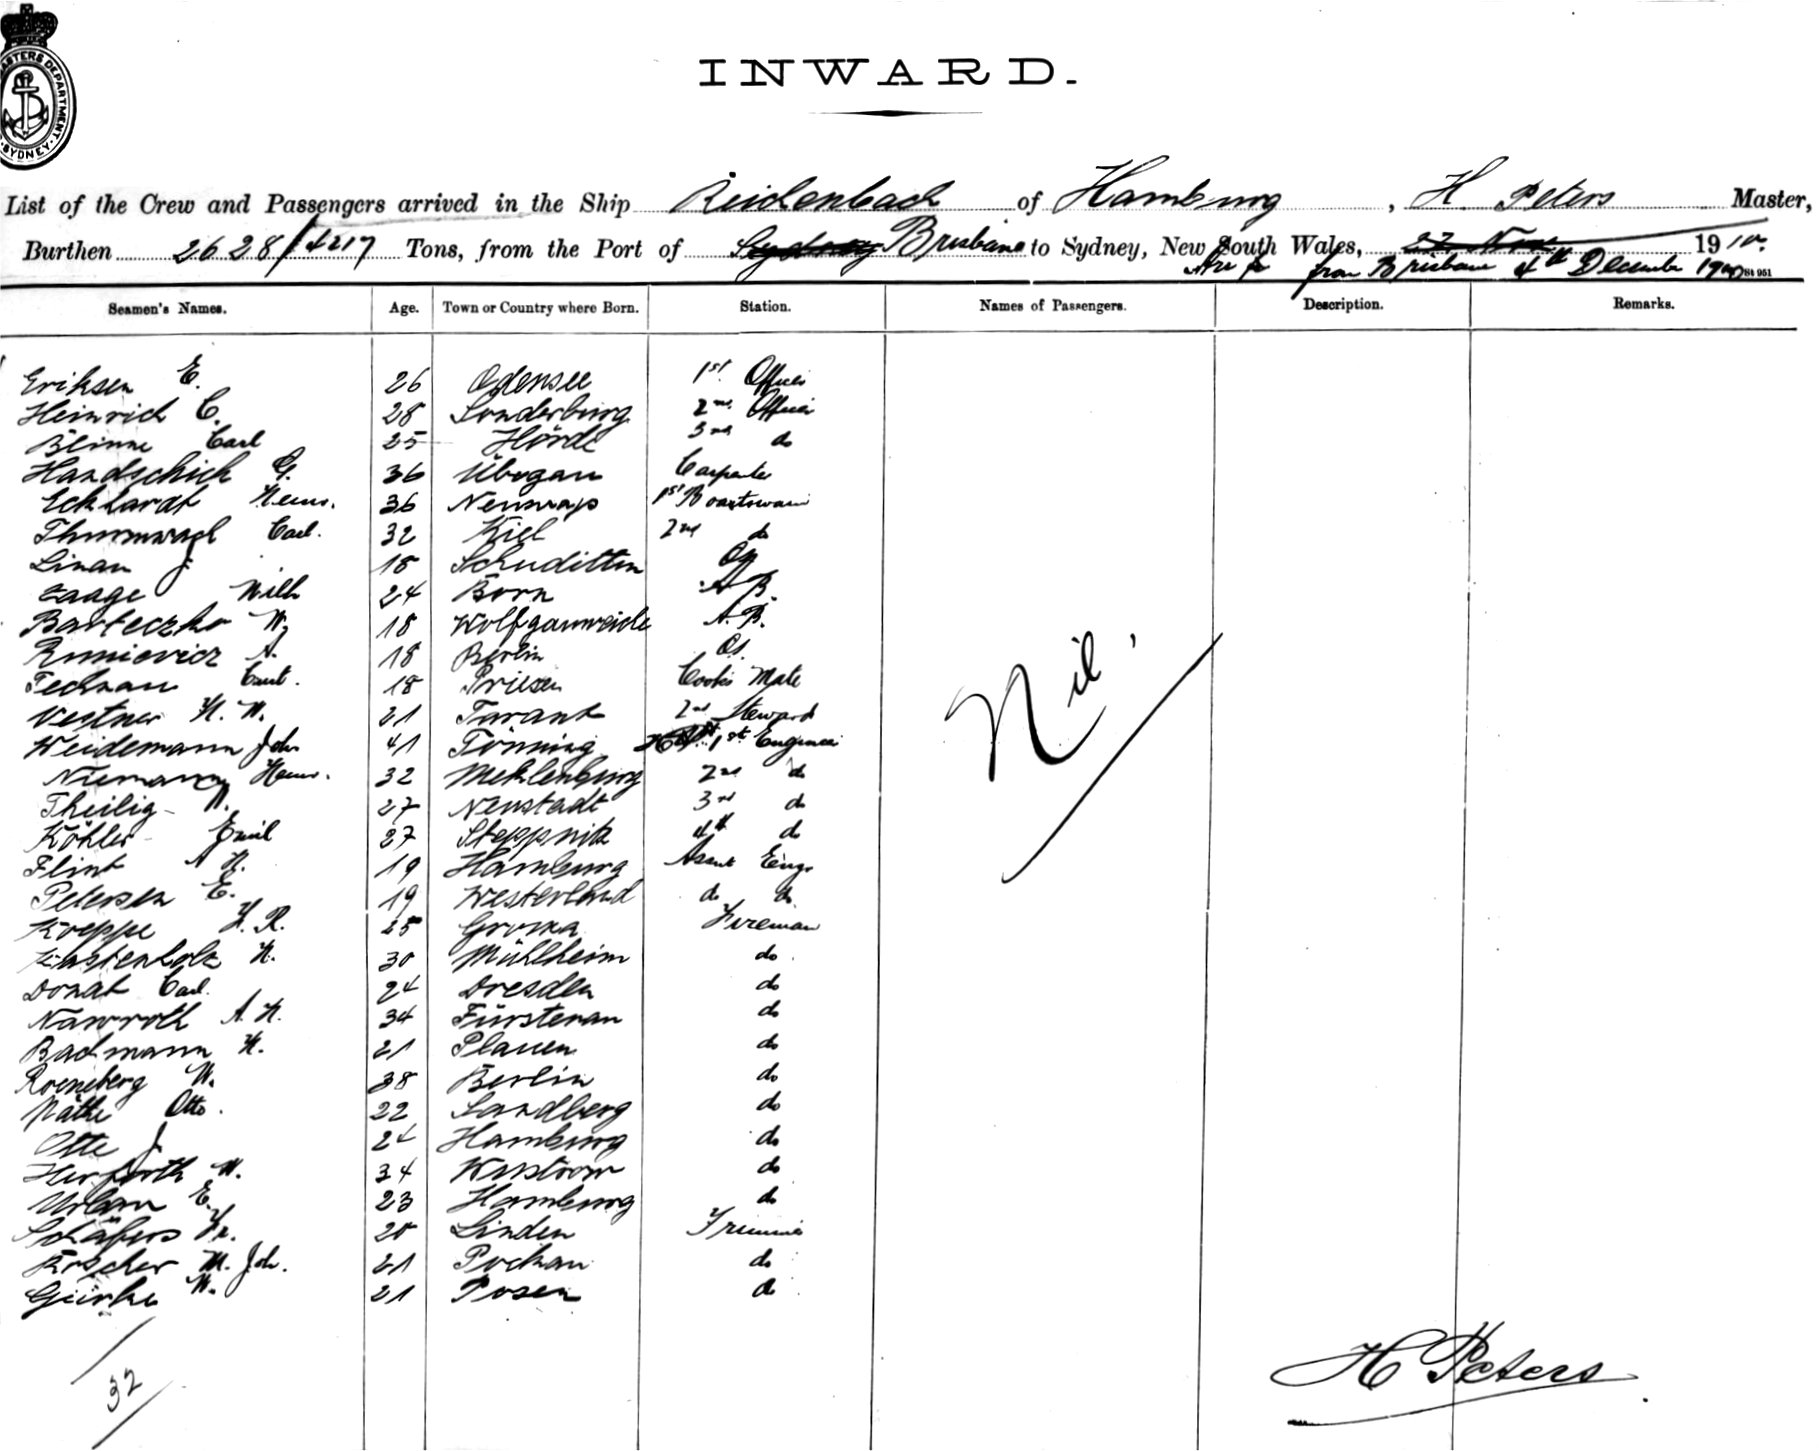 MASTERS DEPARTMENT
SYDNEY
INWARD.
List of the Crew and Passengers arrived in the Ship Reichenbach of Hamburg, H. Peters Master,
Burthen 2628/4217 Tons, from the Port of Sydney Brisbane to Sydney, New South Wales, 27 Nov 1910.
from Brisbane 4th December 1910
Seamen's Names. Age. Town or Country where Born. Station. Names of Passengers. Description. Remarks.
Eriksen E. 26 Odensee 1st Officer
Heinrich C. 28 Sonderburg 2nd Officer
Blinne Carl 25 Hörde 3rd do
Handschick G. 36 Übogau Carpenter
Eckhardt Heinr. 36 1st Boatswain
Carl. 32 Kiel 2nd do
Linau J 18 Schuditten
Zaage Wilh 24 Born A.B.
Barteczko W. 18 A.B.
A. 18 Berlin Os.
Technau Curt. 18 Priesen Cooks Mate
Vestner H. W. 21 Tarant 2nd Steward
Weidemann Joh 41 Tönning 1st Engineer
Niemann Heinr. 32 Meklenburg 2nd do
Theilig W. 27 Neustadt 3rd do
Köhler Emil 27 Steppnitz 4th do
Flint A H. 19 Hamburg Assnt Engr
Petersen E. 19 Westerland do do
Koeppe F. R. 25 Fireman
H. 30 Mühlheim do
Donat Carl. 24 Dresden do
Nawroth A. H. 34 Fürstenau do
Bachmann H. 21 Plauen do
Roeneberg W. 38 Berlin do
Näthe Otto. 22 Sandberg do
Otte J 24 Hamburg do
Herfurth W. 34 Wustrow do
Urban E. 23 Hamburg do
Schäfers Fr. 20 Linden Trimmer
Köscher M. Joh. 21 Pockau do
Gürke W. 21 Posen do
Nil.
32
H Peters